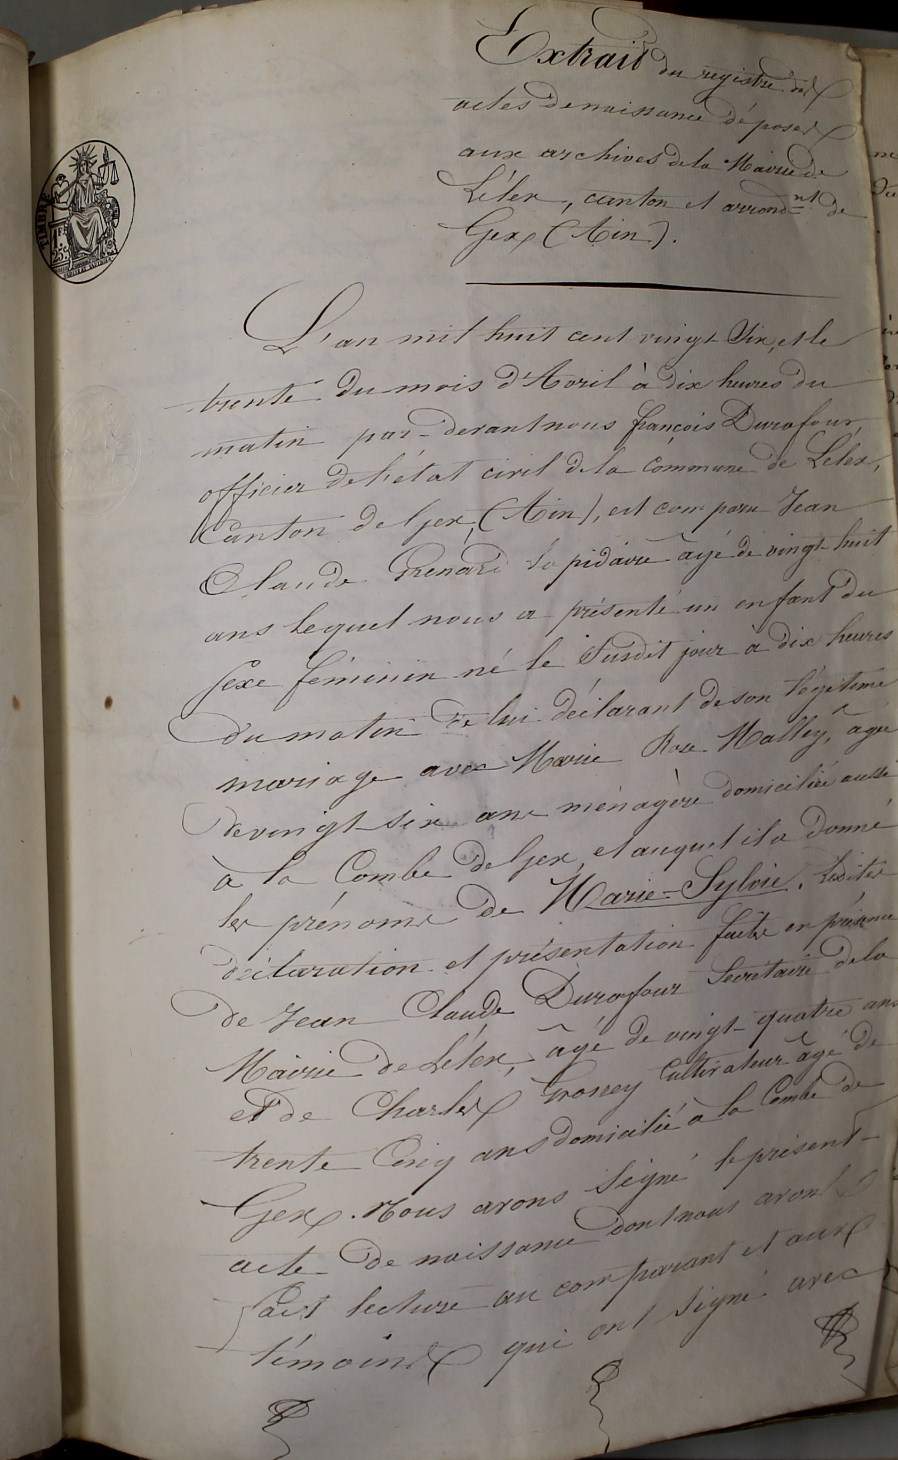 Extrait du registre des
actes de naissance déposés
aux archives de la Mairie de
Lélex, canton et arrond.nt de
Gex (Ain).
TIMBRE
1F
25c
L'an mil huit cent vingt Six, et le
trente du mois d'Avril à dix heures du
matin par-devant nous françois Durafour,
officier de l'état civil de la commune de Lélex,
Canton de Gex, (Ain), est comparu Jean
Claude Grenard lapidaire âgé de vingt-huit
ans lequel nous a présenté un enfant du
sexe féminin né le Susdit jour à dix heures
du matin de lui déclarant de son légitime
mariage avec Marie Rose Malley, âgée
de vingt-six ans ménagère domiciliée aussi
à la Combe de Gex, et auquel il a donné
les prénoms de Marie=Sylvie. Lesdites
déclaration et présentation faites en présence
de Jean Claude Durafour Secrétaire de la
Mairie de Lélex, âgé de vingt-quatre ans
et de Charles Grosrey Cultivateur âgé de
trente Cinq ans domicilié à la Combe de
Gex. Nous avons Signé le présent
acte de naissance dont nous avons
fait lecture au comparant et aux
témoins qui ont signé avec